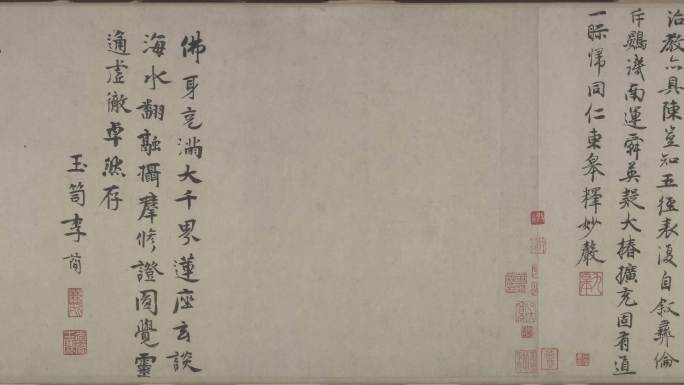 治教之具陳豈知五經表復自叙彝倫
斥鷃譏南運舜英疑大椿擴充固有道
一眎㷌同仁東皋釋妙嚴
佛身充滿大千界蓮座玄談
海水翻融攝羣修證圓覺靈
通虛徹卓然存
玉笥李蕳